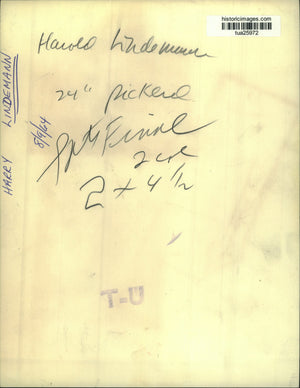 historicimages.com
tua25972
Harold Lindemann
24" pickerel
Spts Final
2 col
2 x 4 1/2
HARRY LINDEMANN
8/9/64
T-U